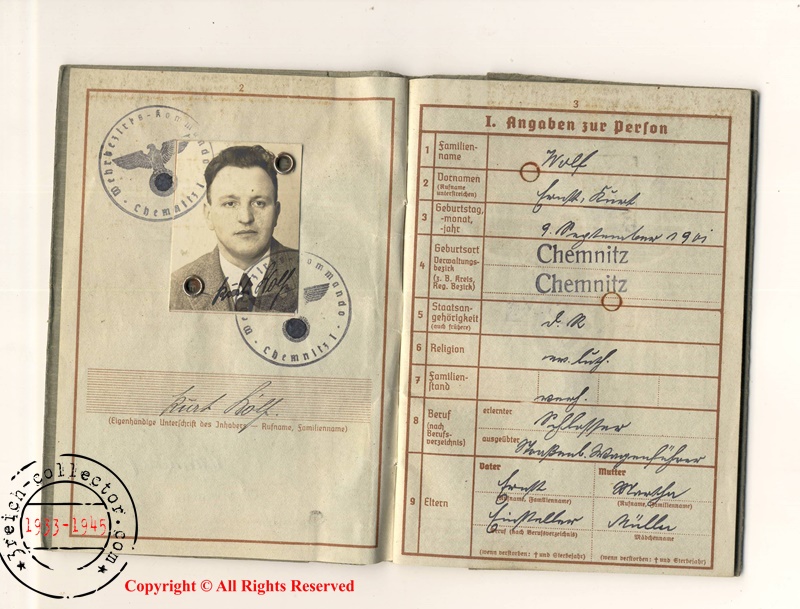 2
Wehrbezirks-Kommando
Chemnitz I
Kurt Wolf
Wehrbezirks-Kommando
Chemnitz I
Kurt Wolf.
(Eigenhändige Unterschrift des Inhabers — Rufname, Familienname)
3
I. Angaben zur Person
1 Familien-name Wolf
2 Vornamen (Rufname unterstreichen) Ernst, Kurt
3 Geburtstag, -monat, -jahr 9. September 1901
4 Geburtsort Verwaltungs-bezirk (z. B. Kreis, Reg. Bezirk) Chemnitz
Chemnitz
5 Staatsan-gehörigkeit (auch frühere) d. R
6 Religion ev. luth.
7 Familien-stand verh.
8 Beruf (nach Berufs-verzeichnis) erlernter Schlosser
ausgeübter Straßenb. Wagenführer
9 Eltern
Vater Mutter
Ernst Martha
(Rufname, Familienname) (Rufname, Familienname)
Einsteller Müller
Beruf (nach Berufsverzeichnis) Mädchenname
(wenn verstorben: † und Sterbejahr) (wenn verstorben: † und Sterbejahr)
3reich-collector.com
1933-1945
Copyright © All Rights Reserved